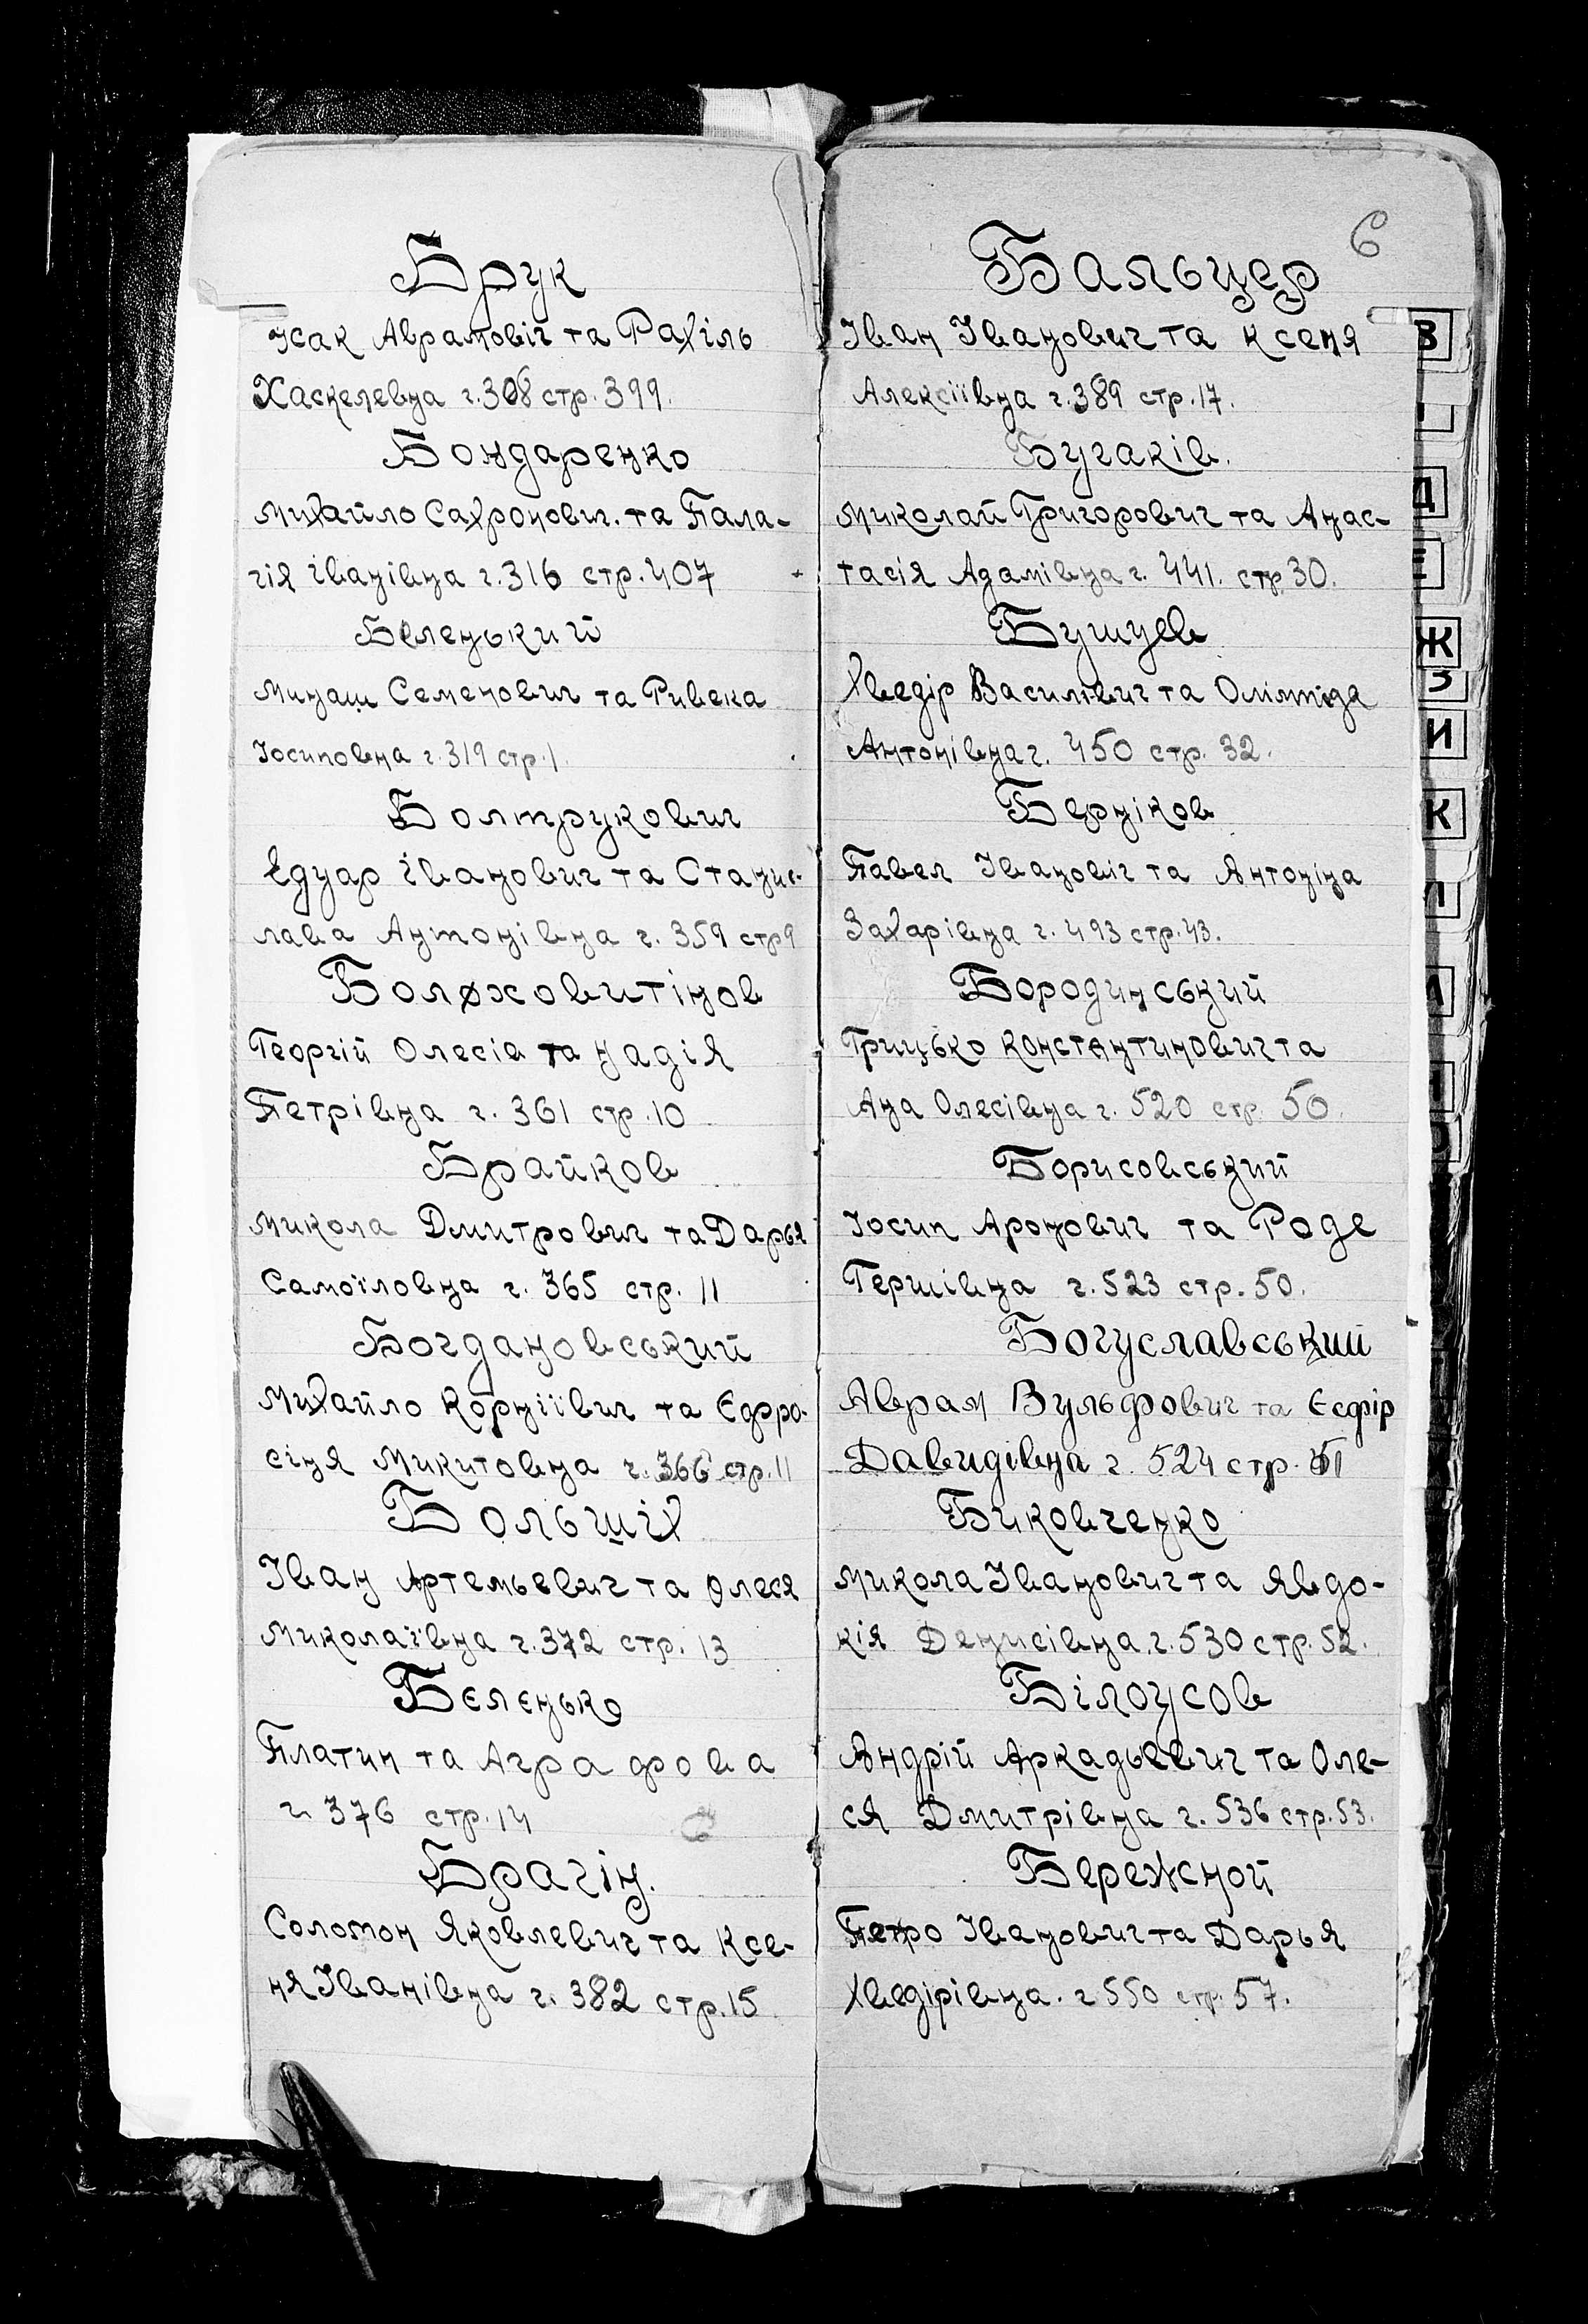 Брук
Ісак Аврамовіч та Рахіль
Хаскелевна г. 308 стр. 399.
Бондаренко
Михайло Сахронович. та Пала-
гія Іванівна г. 316 стр. 407
Беленький
Минаш Семенович та Ривека
Іосиповна г. 319 стр. 1
Болтрукович
Едуар Іванович та Станис-
лава Антонівна г. 359 стр 9
Болховитінов
Георгій Олесів та Надія
Петрівна г. 361 стр. 10
Брайков
Микола Дмитрович та Дарья
Самоїловна г. 365 стр. 11
Богдановський
Михайло Корніївич та Єфро-
сіня Микитовна г. 366 стр. 11
Больших
Іван Артемьевич та Олеся
Миколаївна г. 372 стр. 13
Бєлєнько
Платин та Аграфова
г. 376 стр. 14
Брагін.
Соломон Яковлевич та Ксе-
ня Іванівна г. 382 стр. 15
6
Бальцер
Іван Іванович та Ксеня
Алексіївна г. 389 стр. 17.
Бугаків.
Миколай Григорович та Анас-
тасія Адамівна г. 441. стр 30.
Бушуев
Хведір Василівич та Олімпіда
Антонівна г. 450 стр. 32.
Берніков
Павел Івановіч та Антоніна
Захарівна г. 493 стр. 43.
Бородинський
Грицько Константинович та
Ана Олесівна г. 520 стр. 50.
Борисовський
Іосип Аронович та Роде
Гершівна г. 523 стр. 50.
Богуславський
Аврам Вульфович та Єсфір
Давидівна г. 524 стр. 51
Биковченко
Микола Іванович та Явдо-
кія Денисівна. г. 530 стр. 52.
Білоусов
Андрій Аркадьевич та Оле-
ся Дмитрівна г. 536 стр. 53.
Бережной
Петро Іванович та Дарья
Хведірівна. г 550 стр. 57.
В
Д
Е
Ж
З
И
К
Л